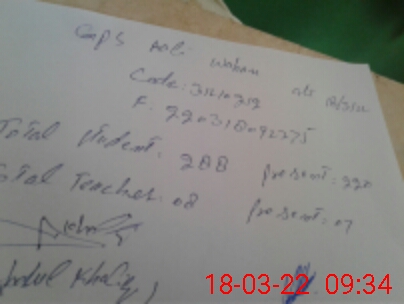 GGPS Aali Wahan dt: 18/3/22
Code: 31210212
F. 220318092275
Total student: 288 present: 220
Total Teacher: 08 present: 07
Abdul Khaliq
18-03-22 09:34